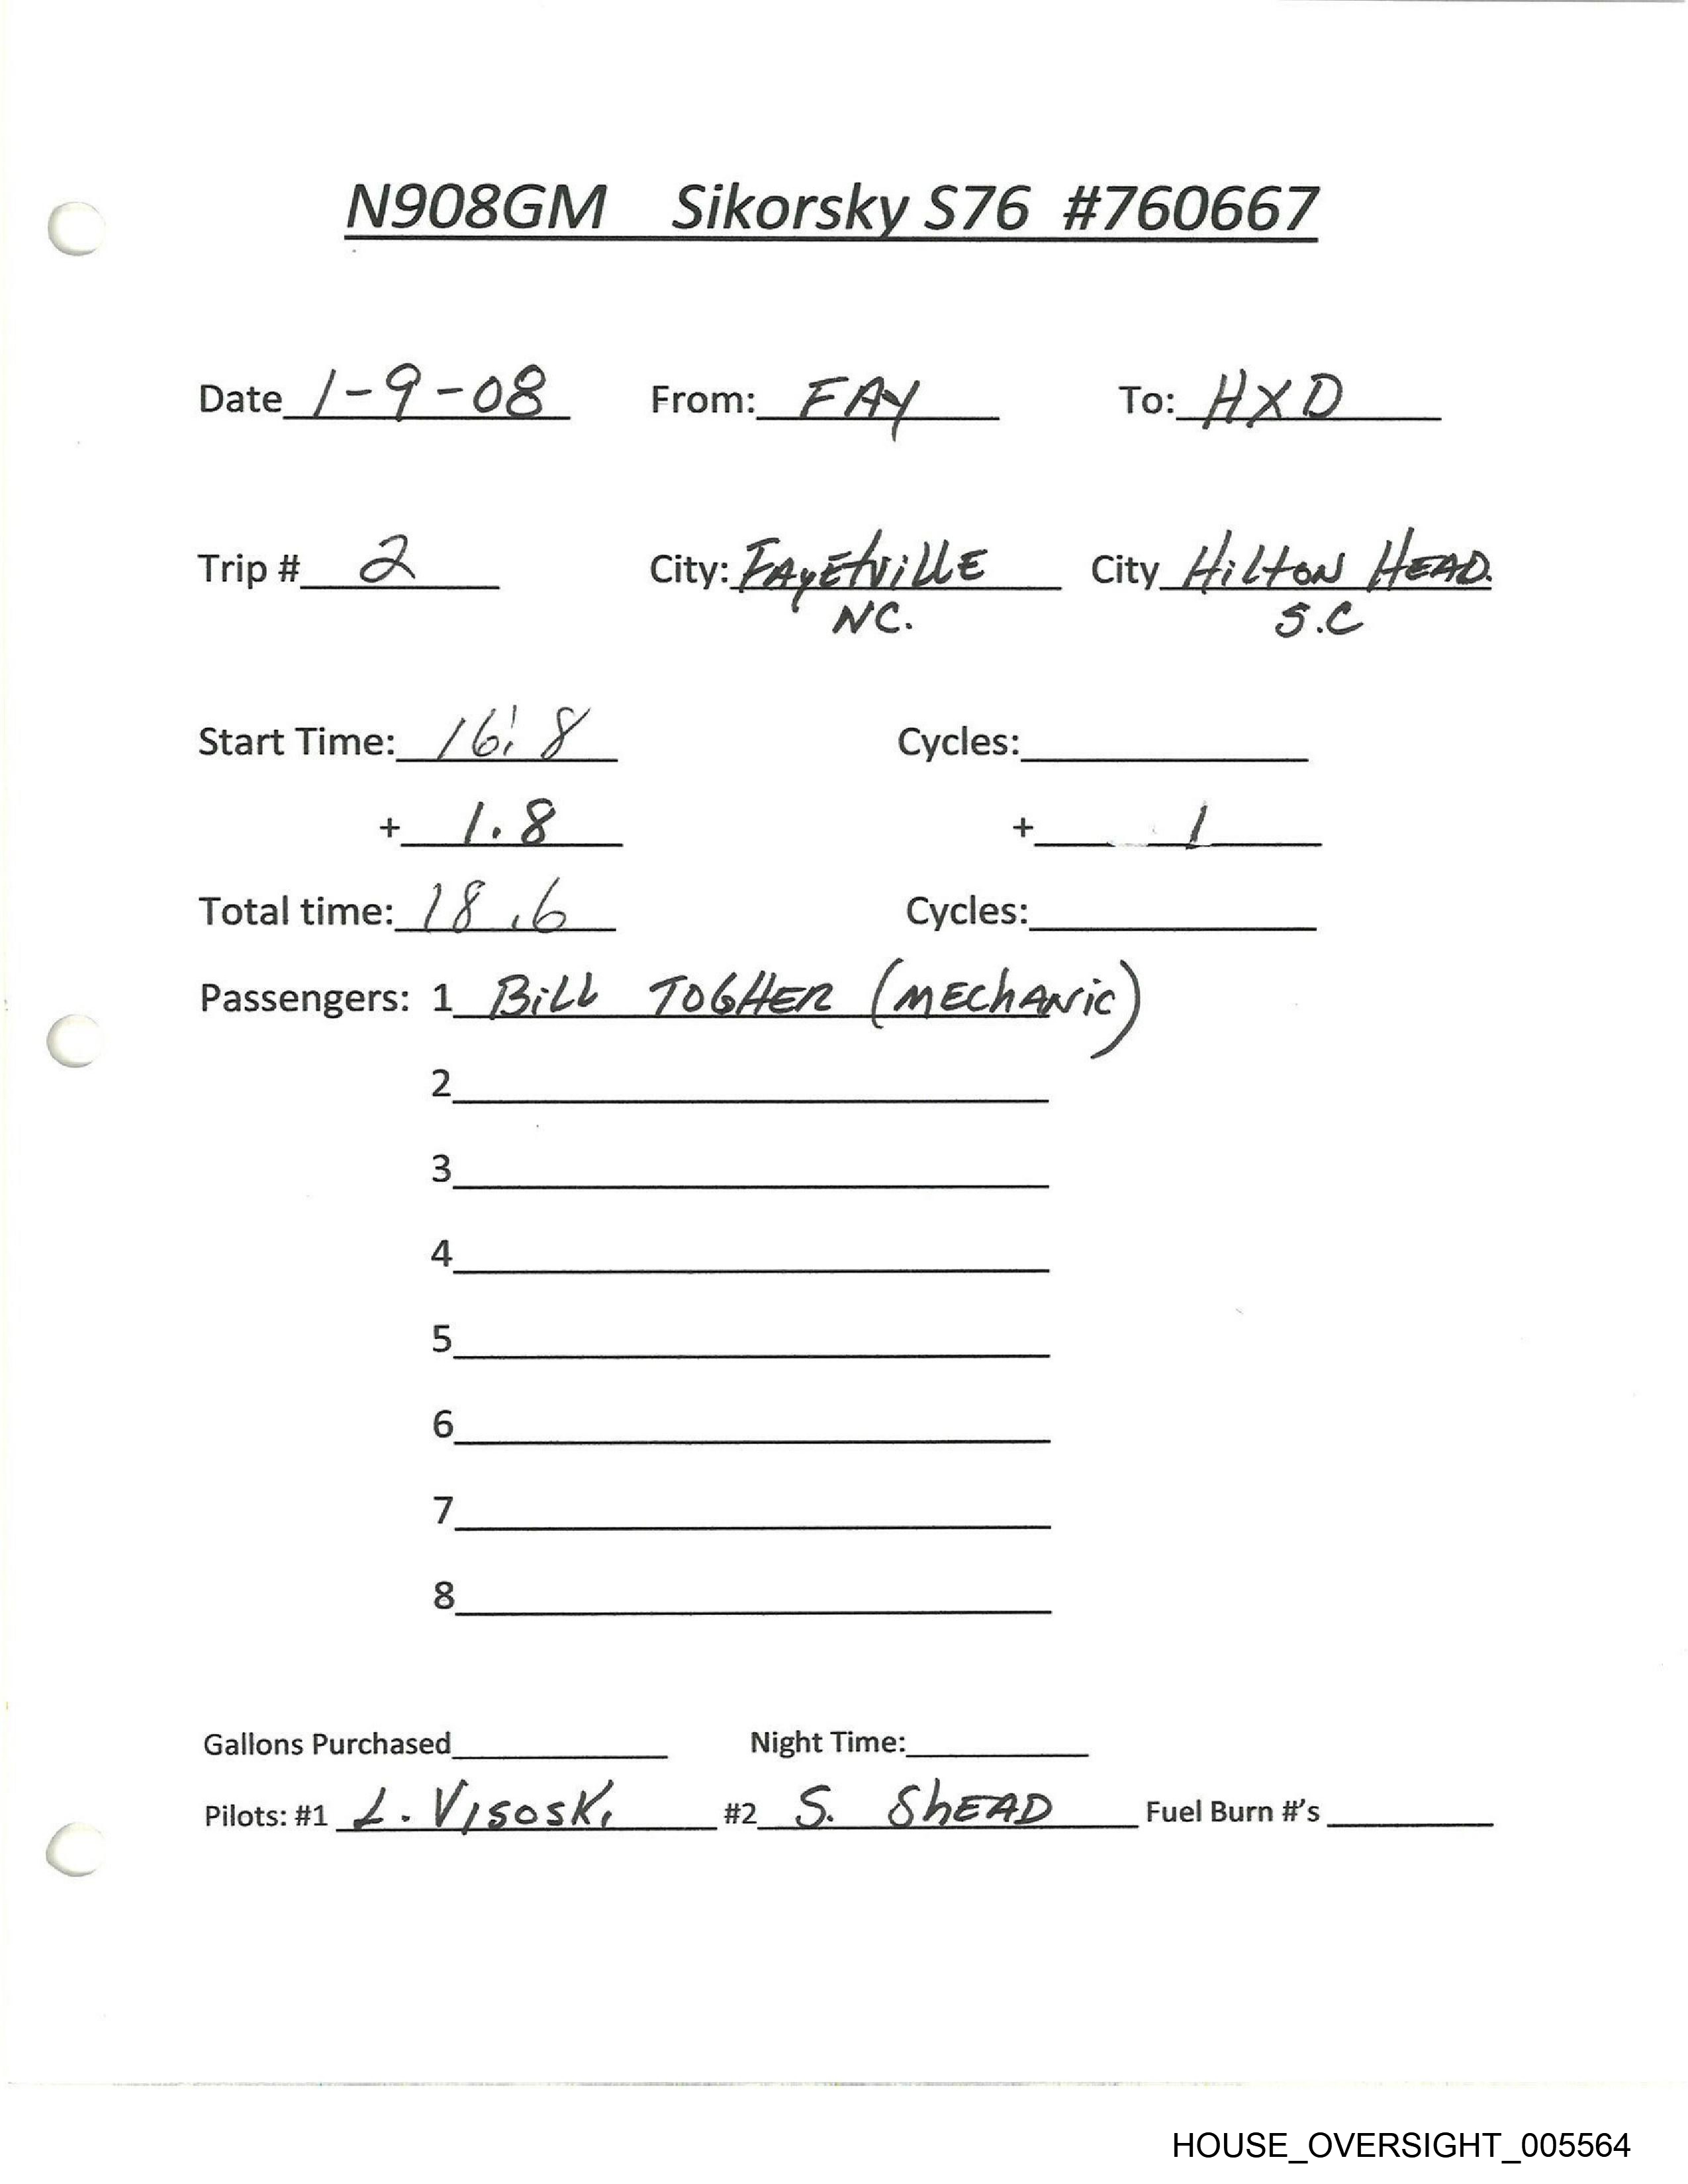 N908GM Sikorsky S76 #760667
Date 1-9-08 From: FAY To: HXD
Trip # 2 City: FAYETVILLE City HILTON HEAD.
NC. S.C
Start Time: 16.8 Cycles:
+ 1.8 + 1
Total time: 18.6 Cycles:
Passengers: 1 BILL TOGHER (MEChANiC)
2
3
4
5
6
7
8
Gallons Purchased Night Time:
Pilots: #1 L. VISOSKi #2 S. ShEAD Fuel Burn #'s
HOUSE_OVERSIGHT_005564